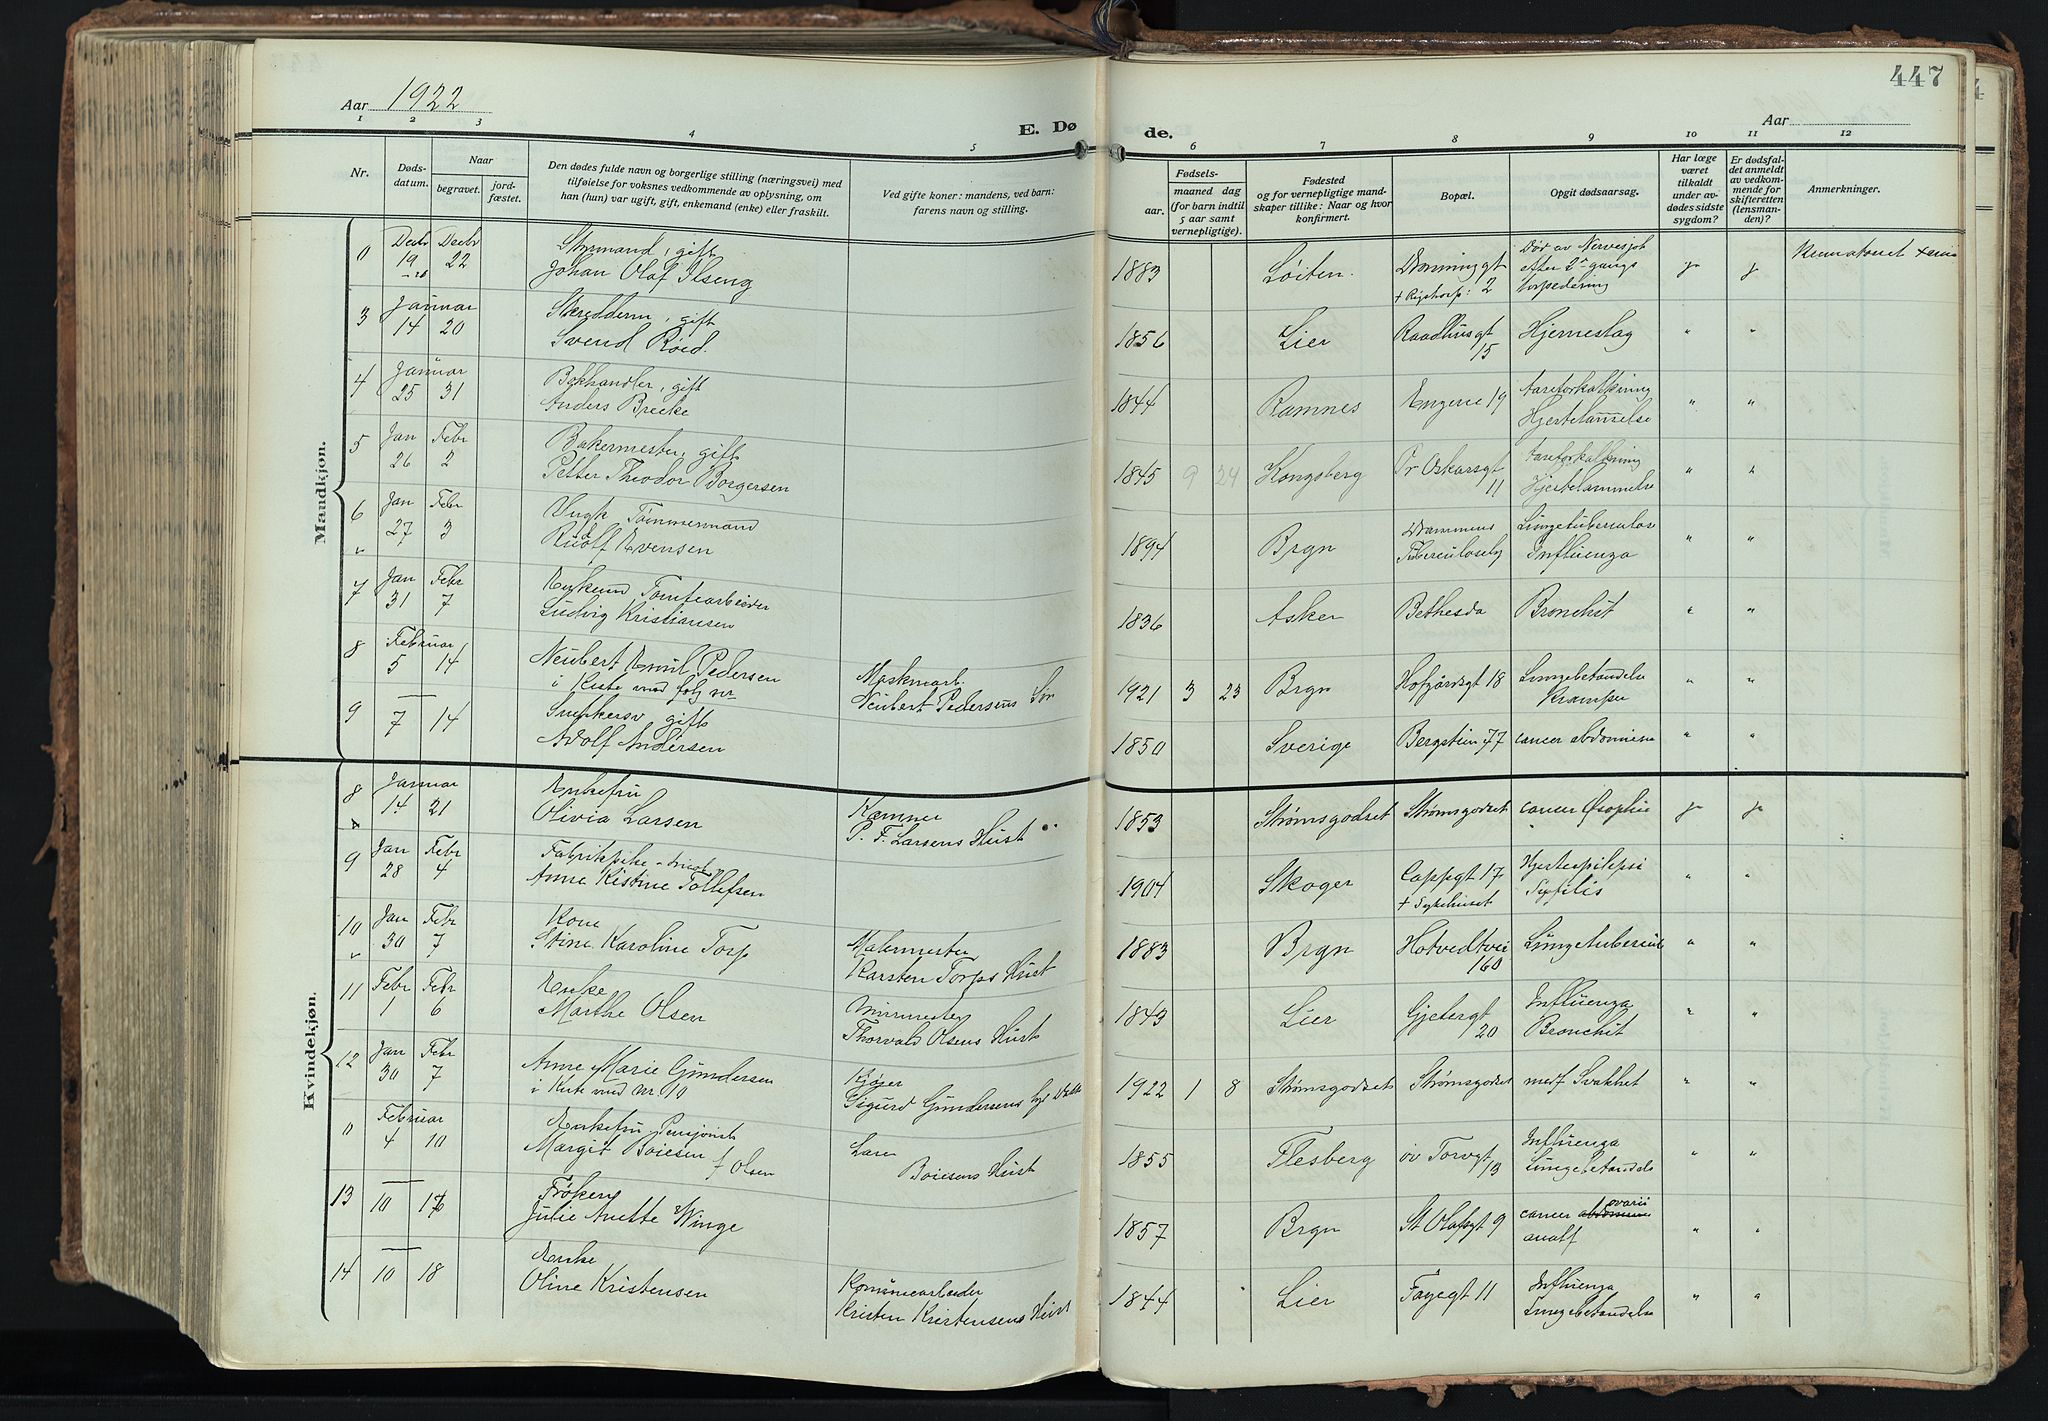 447
Aar 1922
Aar
1 2 3 4 5 6 7 8 9 10 11 12
E. Dø
de.
Nr.
Døds-
datum.
Naar
begravet.
jord-
fæstet.
Den dødes fulde navn og borgerlige stilling (næringsvei) med
tilføielse for voksnes vedkommende av oplysning, om
han (hun) var ugift, gift, enkemand (enke) eller fraskilt.
Ved gifte koner: mandens, ved barn:
farens navn og stilling.
Fødsels-
aar.
maaned dag
(for barn indtil
5 aar samt
vernepligtige).
Fødested
og for vernepligtige mand-
skaper tillike: Naar og hvor
konfirmert.
Bopæl.
Opgit dødsaarsag.
Har læge
været
tilkaldt
under av-
dødes sidste
sygdom?
Er dødsfal-
det anmeldt
av vedkom-
mende for
skifteretten
(lensman-
den)?
Anmerkninger.
Mandkjøn.
0 Decbr 19 Decbr 22
Styrmand, gift
Johan Olaf Ilseng
1883 Løiten. Dronninggt 2
Død av Nervesjok
efter 2 gangs
torpedering
ja ja
3 Januar 14 20
Skredderm, gift
Svend Røed.
1856 Lier Raadhusgt 15 Hjerneslag " "
4 Januar 25 31
Bokhandler, gift
Anders Brecke
1844 Ramnes Engene 19 Aareforkalkning
Hjertelammelse " "
5 Jan 26 Febr 2
Bakermester, gift
Petter Theodor Borgersen
1845 9 24 Kongsberg Pr Oskarsgt 11 Aareforkalkning
Hjertelammelse " "
6 Jan 27 Febr 3
Ungk Tømmermand
Rudolf Evensen
1894 Brgn Drammens
Tuberculosehj
Lungetuberculos
Influenza " "
7 Jan 31 Febr 7
Enkemd, Tomtearbeider
Ludvig Kristiansen
1836 Asker Bethesda Bronchit " "
8 Februar 5 14
Neubert Emil Pedersen
i Kiste med følg nr
Maskinarb.
Neubert Pedersens Søn
1921 3 23 Brgn Hofgårdsgt 18 Lungebetændelse
Krampe " "
9 7 14
Snekkersv, gift
Adolf Andersen
1850 Sverige Bergstien 77 cancer abdominis " "
Kvindekjøn.
8 Januar 14 21
Enkefru
Olivia Larsen
Kæmner
P. F. Larsens Hust
1853 Strømsgodset Strømsgodset cancer Øsophii ja ja
9 Jan 28 Febr 4
Fabrikpike
Anne Kistine Tollefsen
1904 Skoger Cappgt 17
+ Sykehuset
Hjerteepilepsi
Syfilis " "
10 Jan 30 Febr 7
Kone
Stine Karoline Torp
Malermester
Karsten Torps Hust
1883 Brgn Hotvedtvei 160 Lungetubercul " "
11 Febr 1 Febr 6
Enke
Marthe Olsen
Murmester
Thorvald Olsens Hust
1843 Lier Gjetergt 20 Influenza
Bronchit " "
12 Jan 30 Febr 7
Anne Marie Gundersen
i Kiste med nr 10
Kjører
Sigurd Gundersens
1922 1 8 Strømsgodset Strømsgodset medf Svakhet " "
0 Februar 4 10
Enkefru Pensjonist
Margit Boiesen f Olsen
Boiesens Hust
1855 Flesberg øv Torvgt 13 Influenza
Lungebetændelse " "
13 10 16
Frøken
Julie Anette Winge
1857 Brgn St Olafsgt 9 cancer ovarii
" "
14 10 18
Enke
Oline Kristensen
Komunearbeider
Kristen Kristensens Hust
1844 Lier Fayegt 11 Influenza
Lungebetændelse " "